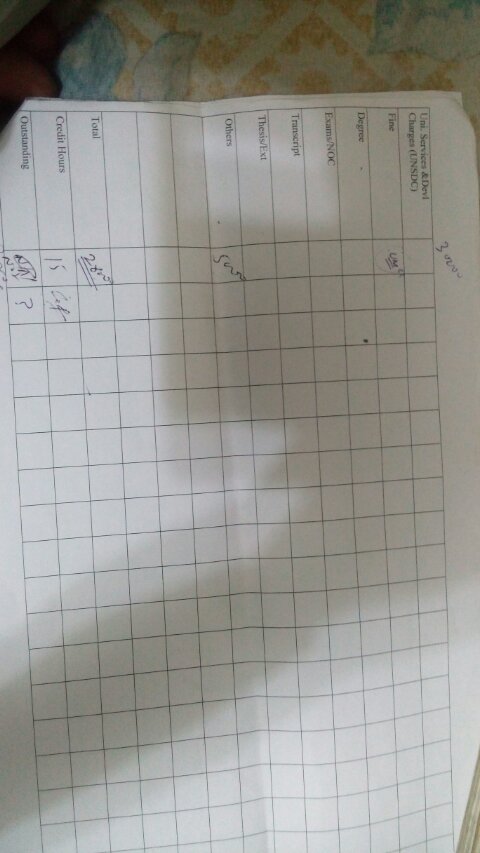 Uni. Services &Devl
Charges (UNSDC)
Fine
Degree
Exams/NOC
Transcript
Thesis/Ext
Others 5000
Total
Credit Hours 15
Outstanding ?